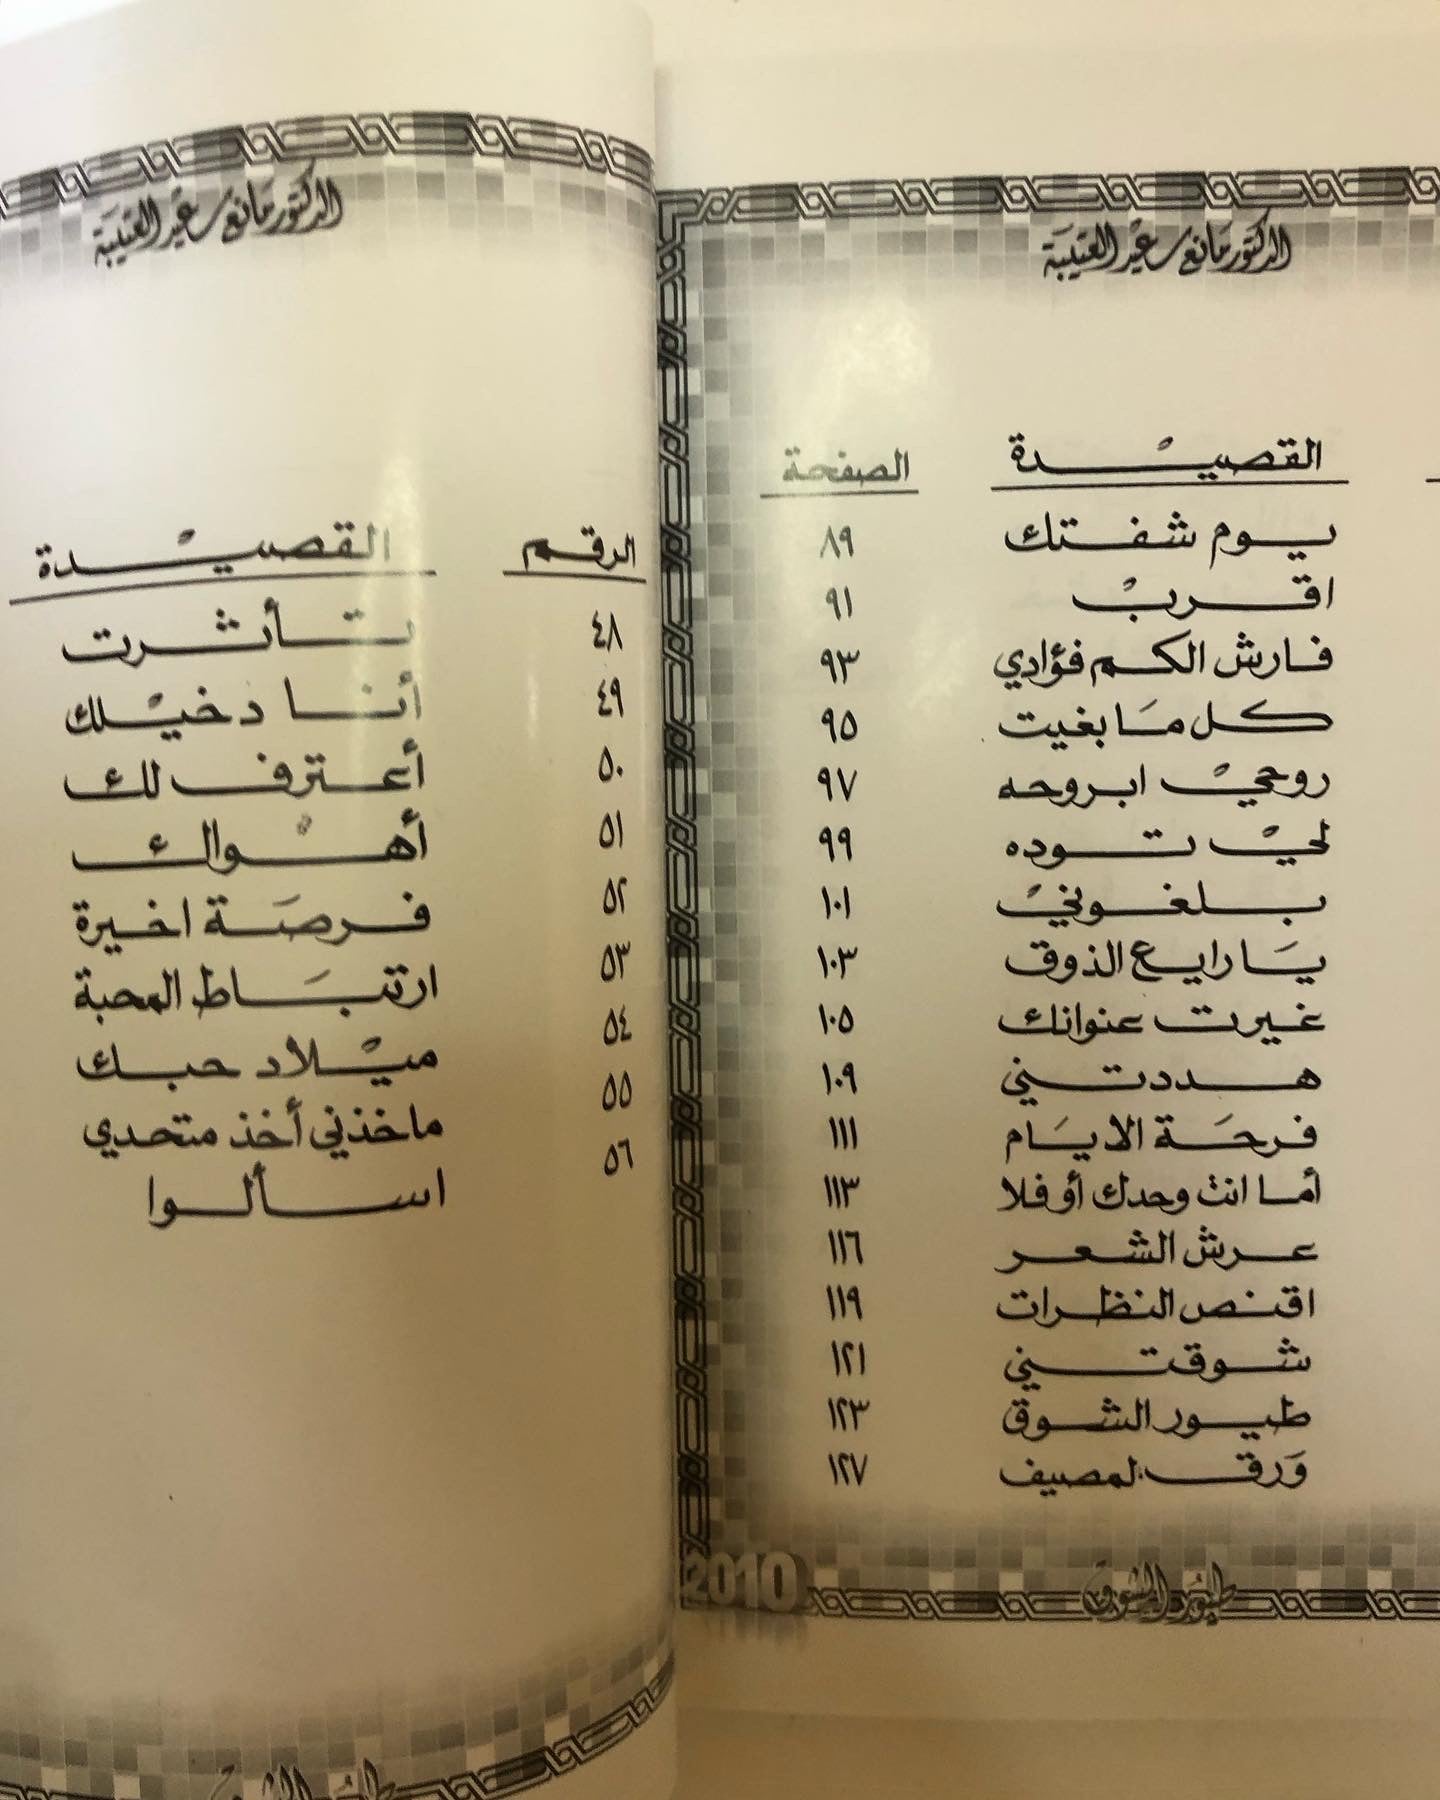 الدكتور مانع سعيد العتيبة
القصيدة الصفحة
يوم شفتك ٨٩
اقرب ٩١
فارش الكم فؤادي ٩٣
كل ما بغيت ٩٥
روحي ابروحه ٩٧
لي توده ٩٩
بلغوني ١٠١
يا رايع الذوق ١٠٣
غيرت عنوانك ١٠٥
هددتني ١٠٩
فرحة الايام ١١١
أما انت وحدك أو فلا ١١٣
عرش الشعر ١١٦
اقنص النظرات ١١٩
شوقتني ١٢١
طيور الشوق ١٢٣
ورق لمصيف ١٢٧
2010
طيور الشوق
الدكتور مانع سعيد العتيبة
الرقم القصيدة
٤٨ تأثرت
٤٩ أنا دخيلك
٥٠ أعترف لك
٥١ أهواك
٥٢ فرصة اخيرة
٥٣ ارتباط المحبة
٥٤ ميلاد حبك
٥٥ ماخذني أخذ متحدي
٥٦ اسألوا